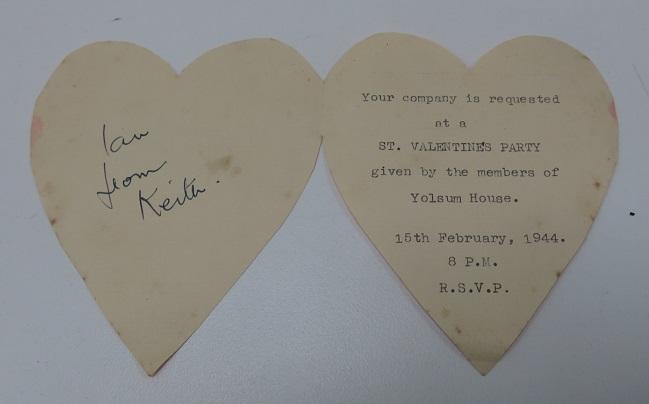 Ian
from
Keith.
Your company is requested
at a
ST. VALENTINE'S PARTY
given by the members of
Yolsum House.
15th February, 1944.
8 P.M.
R.S.V.P.